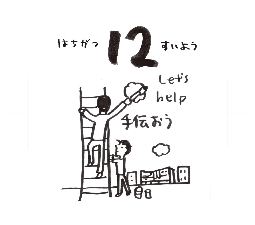 はちがつ 12 すいよう
Let's
help
手伝おう